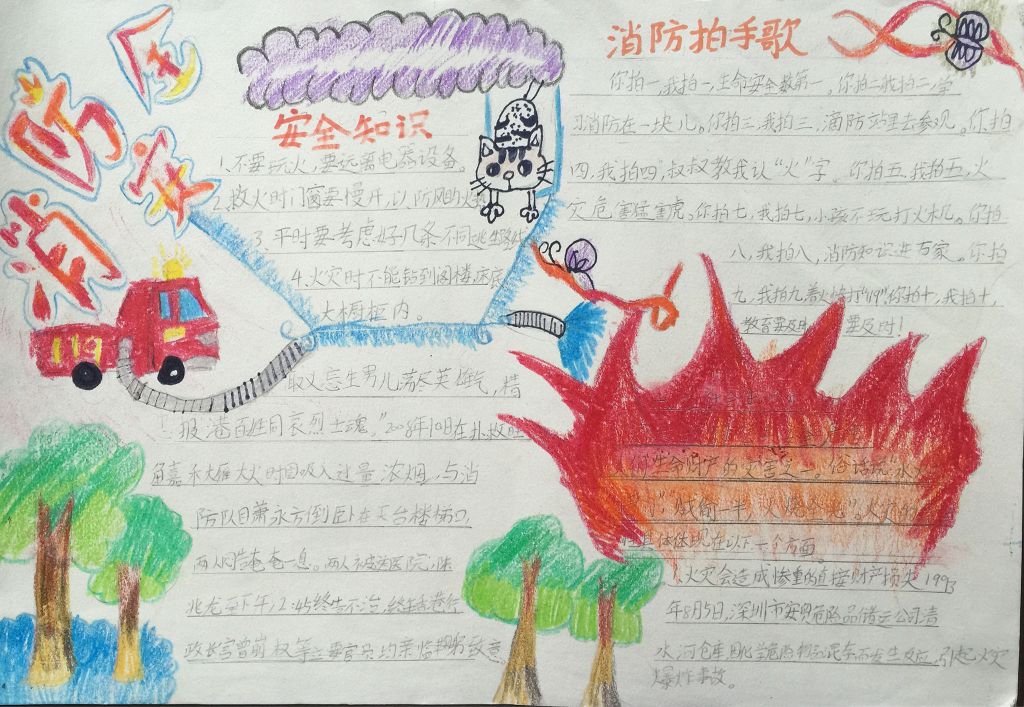 消防安全
119
安全知识
1、不要玩火，要远离电器设备。
2、救火时门窗要慢开，以防风助火
3、平时要考虑好几条不同逃生路线
4、火灾时不能钻到阁楼、床底
大橱柜内。
取义忘生男儿荡尽英雄气，精
报港百姓同哀烈士魂。"2008年10日在扑救旺
角嘉禾大厦大火时因吸入过量浓烟，与消
防队目萧永方倒卧在天台楼梯口
两人同告奄奄一息。两人被送医院，陈
兆龙至下午12:45终告不治，终年
政长官曾荫权等主要官员均亲临致意
消防拍手歌
你拍一，我拍一，生命安全数第一。你拍二我拍二，学
习消防在一块儿。你拍三，我拍三，消防这里去参观。你拍
四，我拍四，叔叔教我认"火"字。你拍五，我拍五，火
灾危害猛如虎。你拍七，我拍七，小孩不玩打火机。你拍
八，我拍八，消防知识进万家。你拍
九，我拍九，着火请打"119"你拍十，我拍十，
教育要及时 要及时！
生命财产的灾害之一。俗话说"水火
贼偷一半，火烧全光"。火灾的
具体体现在以下一个方面
火灾会造成惨重的直接财产损失 1993
年8月5日，深圳市安贸危险品储运公司清
水河仓库因化学危险物品混存而发生反应，引起火灾
爆炸事故。